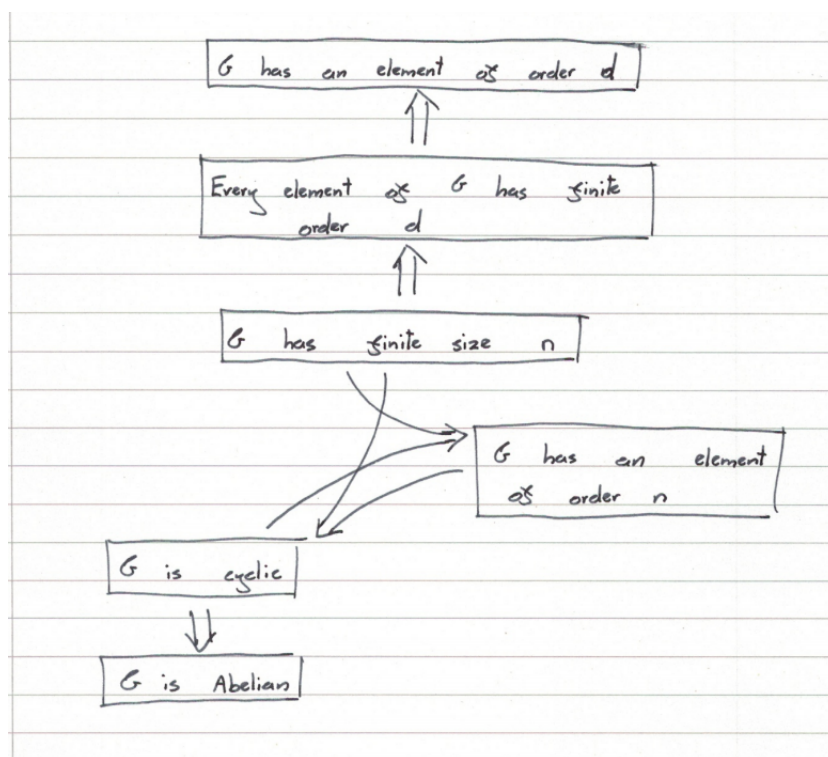 G has an element of order d
Every element of G has finite
order d
G has finite size n
G has an element
of order n
G is cyclic
G is Abelian